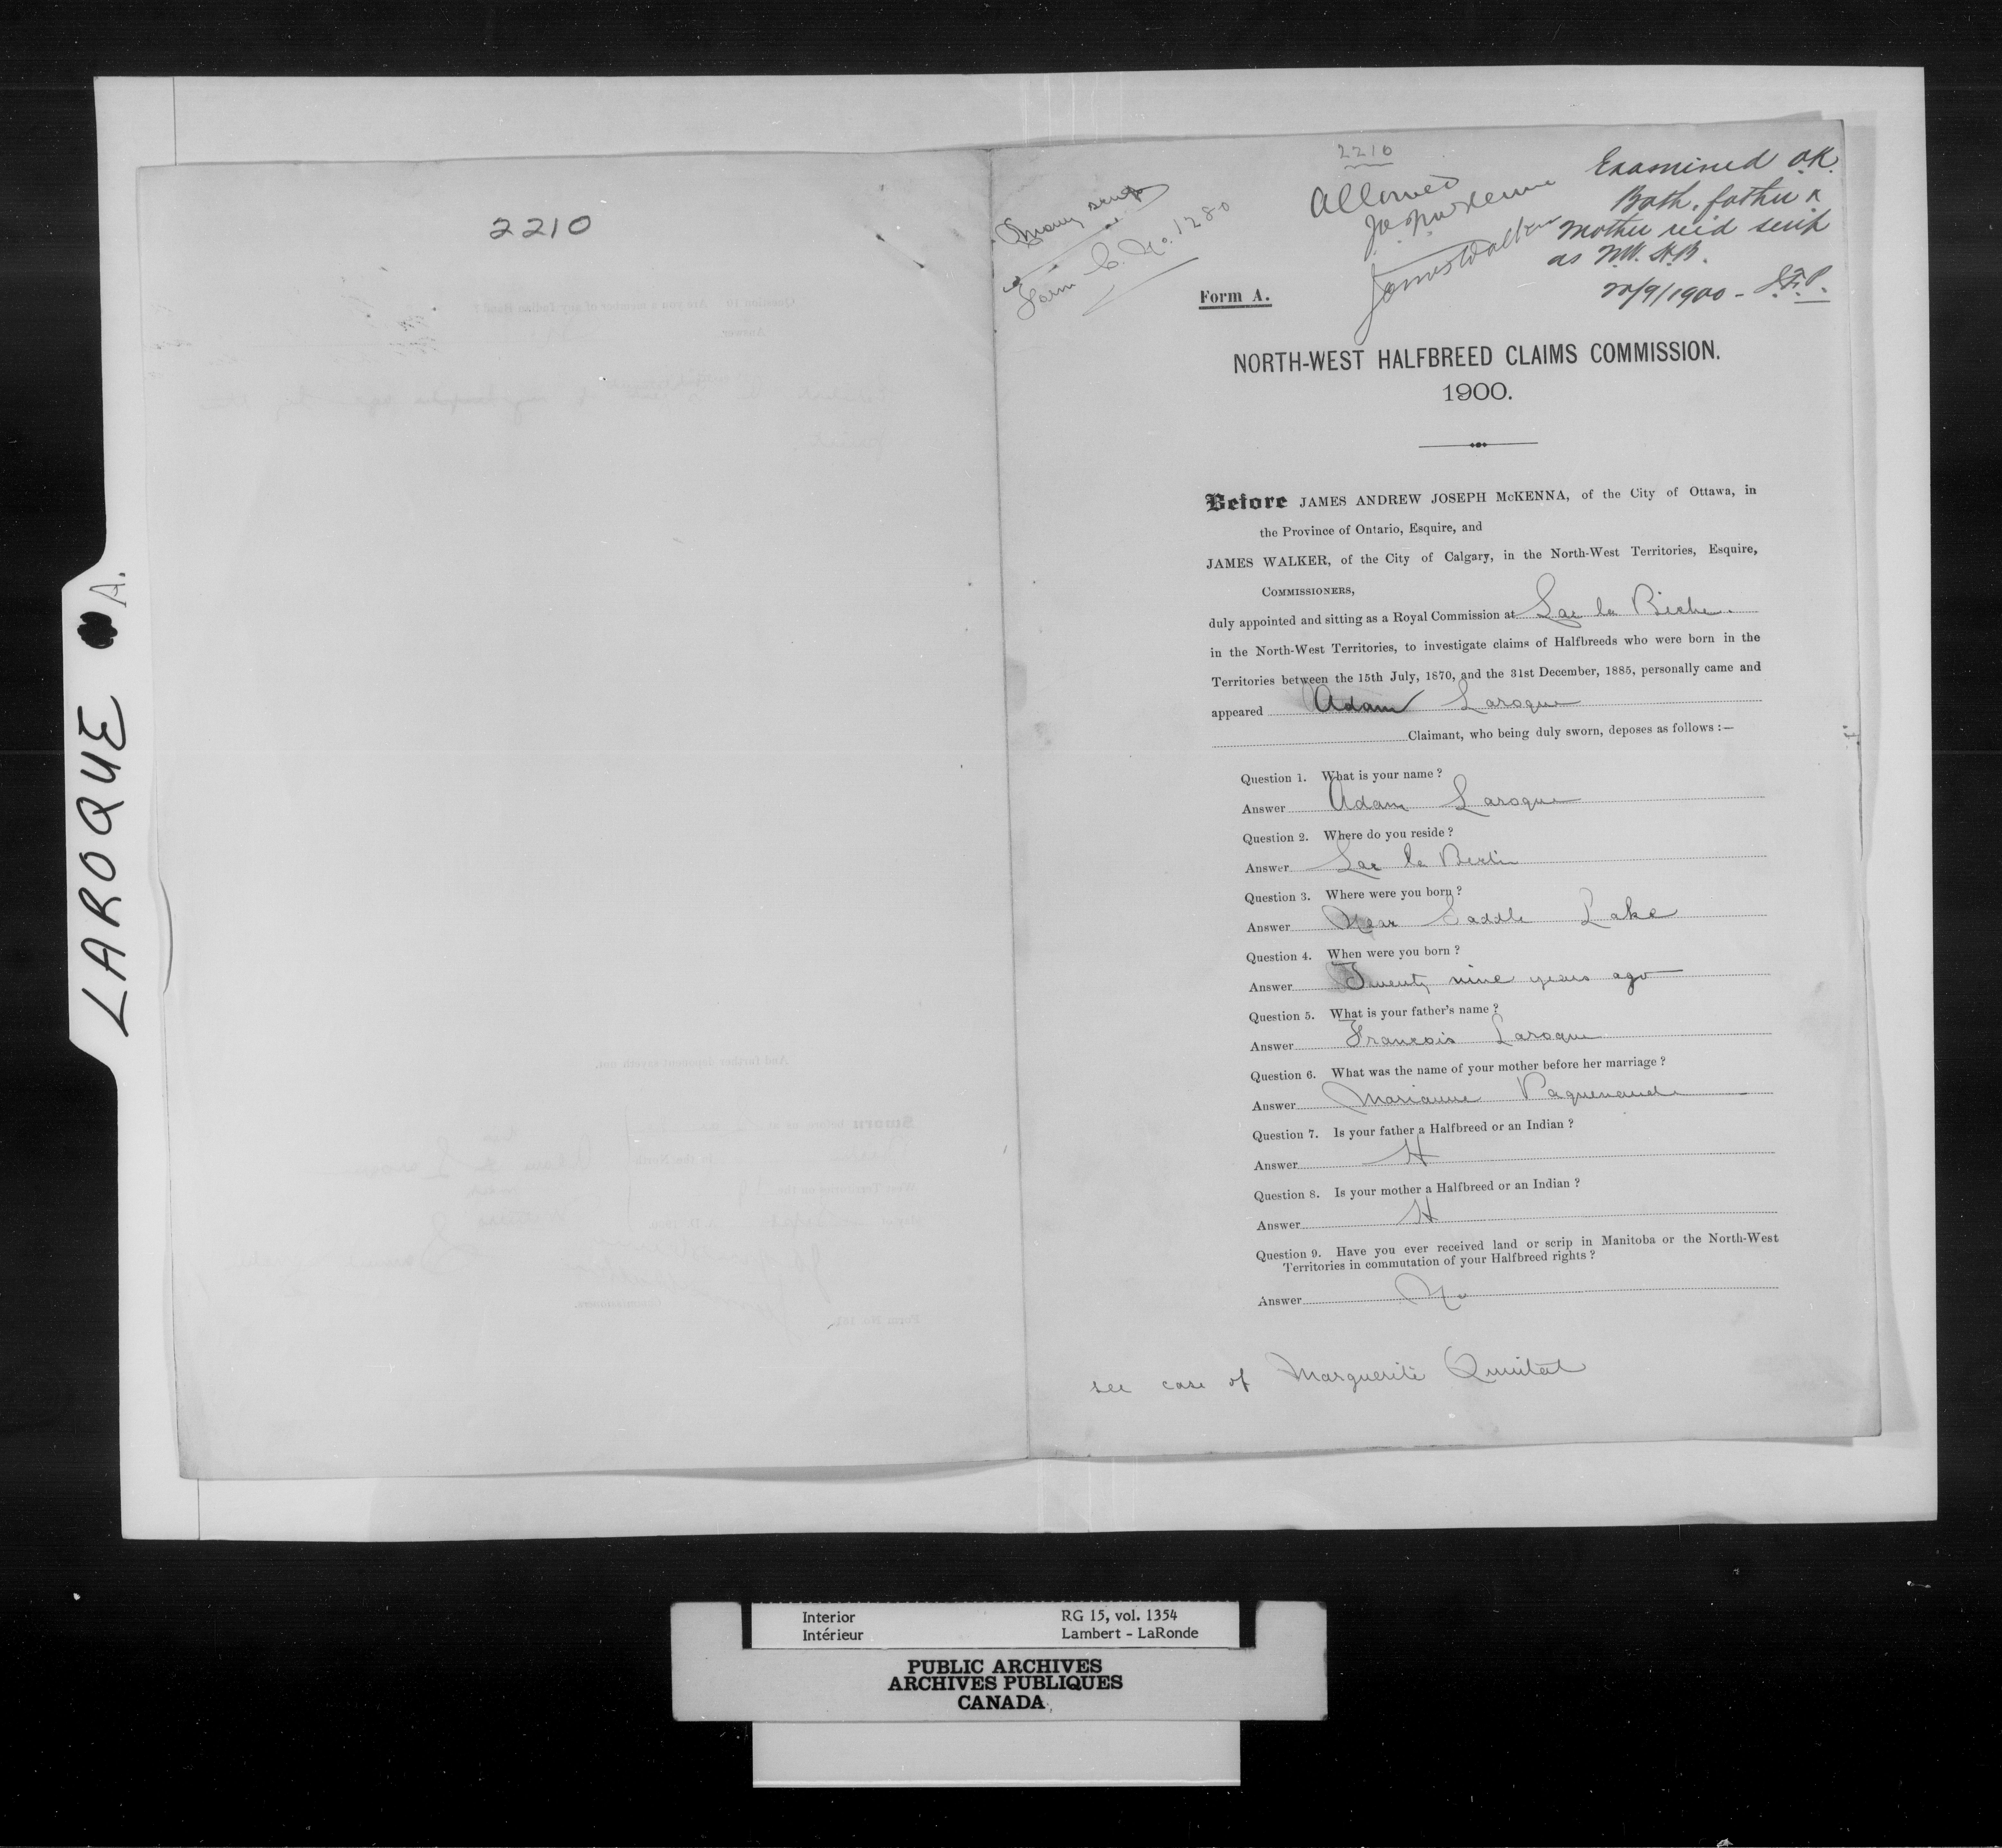 LAROQUE A.
2210
2210
Money scrip
Form C. No. 1280
Allowed
James Walker
Examined O.K.
Both father &
mother rec'd scrip
as N.W. H.B.
/9/1900 -
Form A.
NORTH-WEST HALFBREED CLAIMS COMMISSION.
1900.
Before JAMES ANDREW JOSEPH McKENNA, of the City of Ottawa, in
the Province of Ontario, Esquire, and
JAMES WALKER, of the City of Calgary, in the North-West Territories, Esquire,
COMMISSIONERS,
duly appointed and sitting as a Royal Commission at Lac la Biche.
in the North-West Territories, to investigate claims of Halfbreeds who were born in the
Territories between the 15th July, 1870, and the 31st December, 1885, personally came and
appeared Adam Laroque
Claimant, who being duly sworn, deposes as follows :—
Question 1. What is your name ?
Answer Adam Laroque
Question 2. Where do you reside ?
Answer Lac la Biche
Question 3. Where were you born ?
Answer Near Saddle Lake
Question 4. When were you born ?
Answer Twenty nine years ago
Question 5. What is your father's name ?
Answer Francois Laroque
Question 6. What was the name of your mother before her marriage ?
Answer Marianne
Question 7. Is your father a Halfbreed or an Indian ?
Answer H
Question 8. Is your mother a Halfbreed or an Indian ?
Answer H
Question 9. Have you ever received land or scrip in Manitoba or the North-West
Territories in commutation of your Halfbreed rights ?
Answer No
see case of Marguerite Quintal
Interior RG 15, vol. 1354
Intérieur Lambert - LaRonde
PUBLIC ARCHIVES
ARCHIVES PUBLIQUES
CANADA